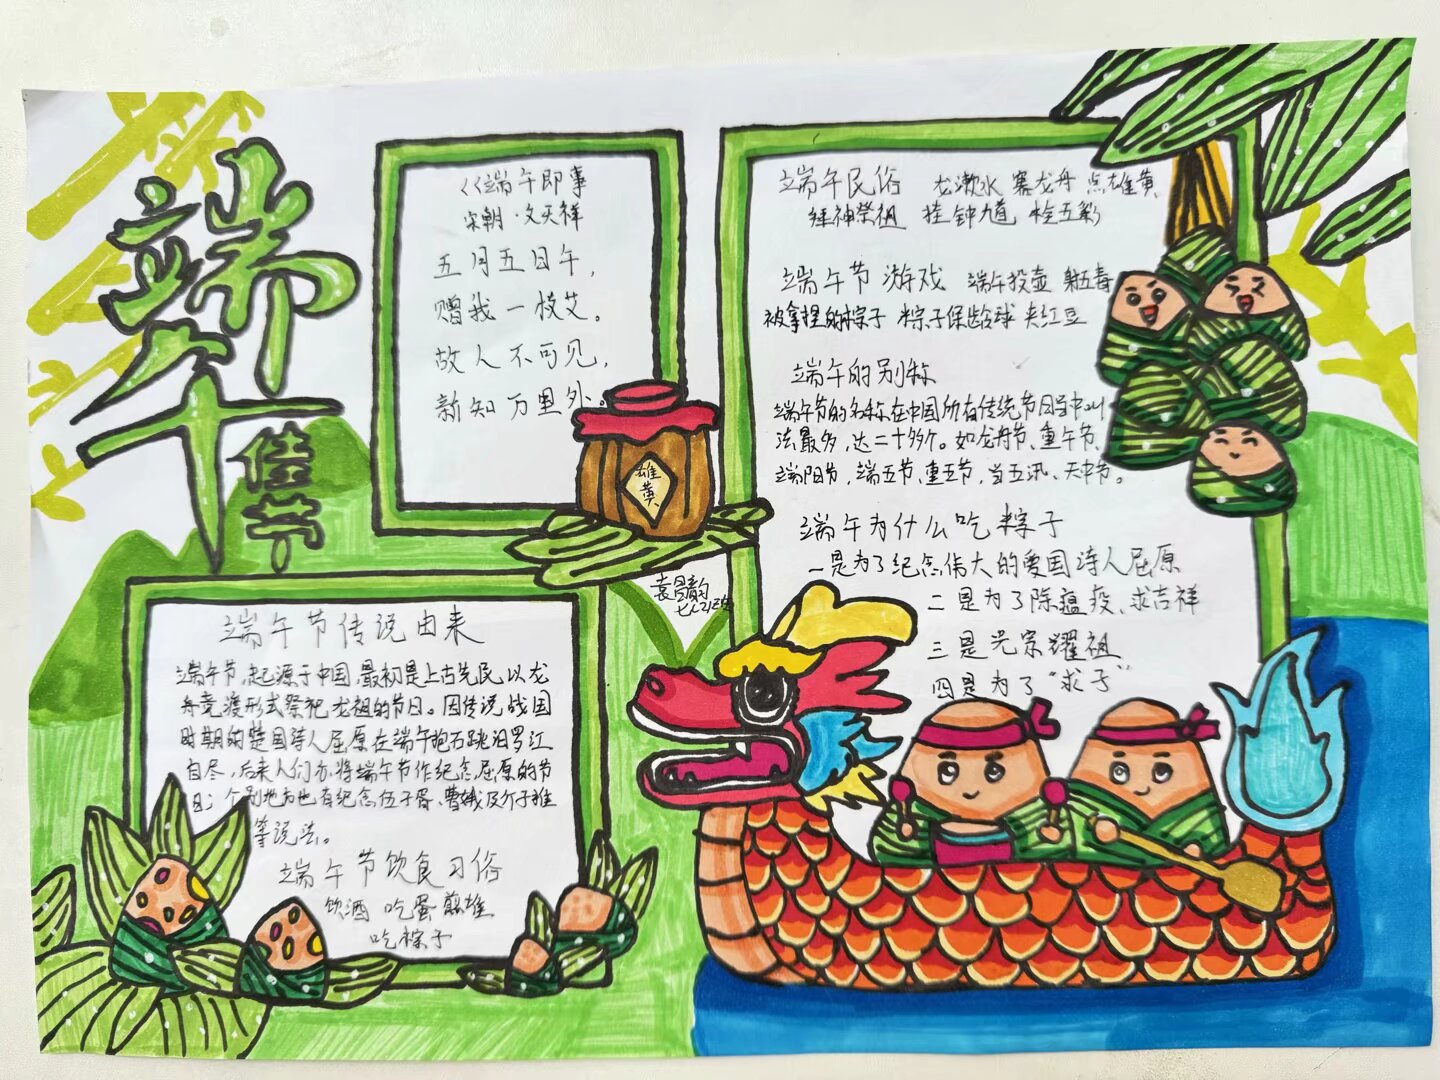 端午
佳节
《端午即事
宋朝·文天祥
五月五日午，
赠我一枝艾。
故人不可见，
新知万里外。
雄黄
袁昌韵
七(2)班
端午节传说由来
端午节，起源于中国，最初是上古先民以龙
舟竞渡形式祭祀龙祖的节日。因传说战国
时期的楚国诗人屈原在端午抱石跳汨罗江
自尽，后来人们亦将端午节作纪念屈原的节
日；个别地方也有纪念伍子胥、曹娥及介子推
等说法。
端午节饮食习俗
饮酒 吃蛋 煎堆
吃粽子
端午民俗 龙潄水 赛龙舟 点雄黄
拜神祭祖 挂钟馗 栓五彩
端午节游戏 端午投壶 射五毒
被拿捏的粽子 粽子保龄球 夹红豆
端午的别称
端午节的名称在中国所有传统节日当中叫
法最多，达二十多个。如龙舟节、重午节、
端阳节，端五节、重五节，当五汛、天中节。
端午为什么吃粽子
一是为了纪念伟大的爱国诗人屈原
二是为了除瘟疫、求吉祥
三是光宗耀祖
四是为了“求子”